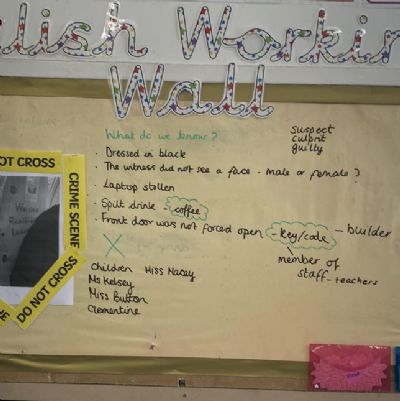 lish Working
Wall
What do we know?
Suspect
culprit
guilty
· Dressed in black
· The witness did not see a face - male or female?
· Laptop stolen
· Spilt drink - coffee
· Front door was not forced open - key/code - builder
member of
staff - teachers
X
Children Miss Nacey
Ms Kelsey
Miss Button
Clementine
OT CROSS
CRIME SCENE
DO NOT CROSS
We are